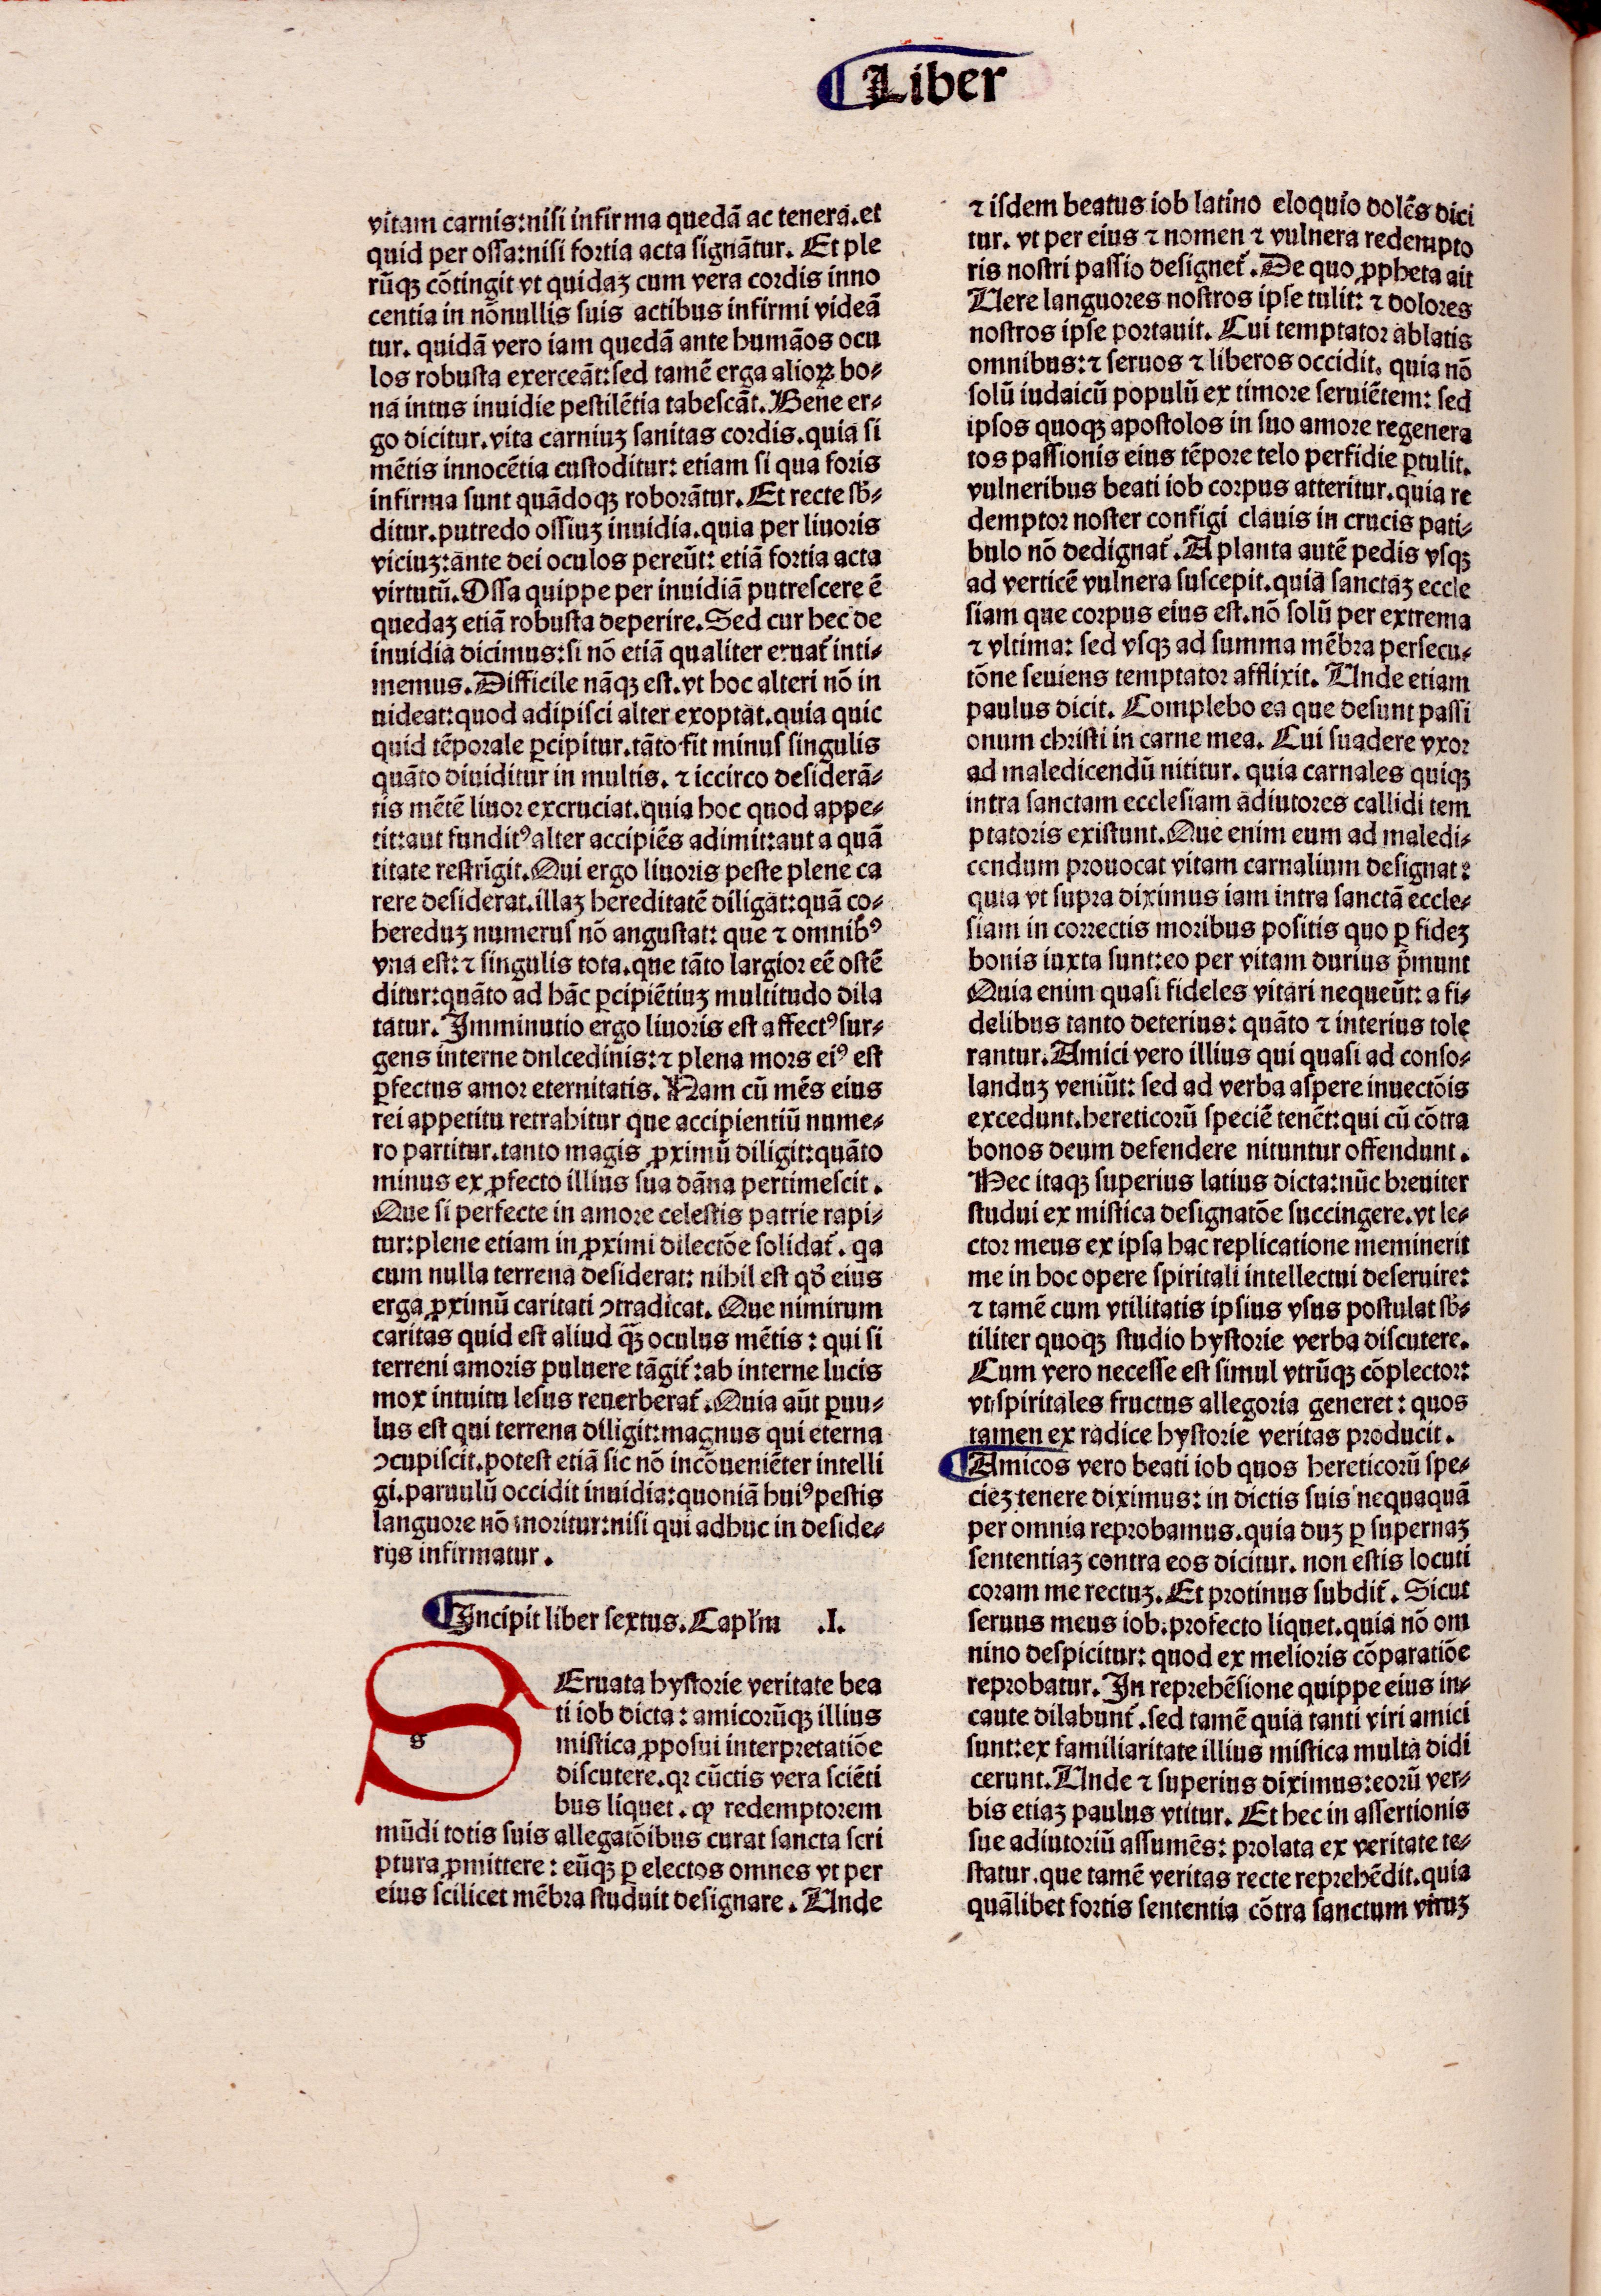 Liber
vitam carnis:nisi infirma quedā ac tenera.et
quid per ossa:nisi fortia acta signātur. Et ple
rūqꝫ cōtingit vt quidaꝫ cum vera cordis inno
centia in nōnullis suis actibus infirmi videā
tur. quidā vero iam quedā ante humāos ocu
los robusta exerceāt:sed tamē erga alioꝝ bo⸗
na intus inuidie pestilētia tabescāt. Bene er⸗
go dicitur.vita carniuꝫ sanitas cordis.quia si
mētis innocētia custoditur: etiam si qua foris
infirma sunt quādoqꝫ roborātur. Et recte sb̄⸗
ditur.putredo ossiuꝫ inuidia.quia per liuoris
viciuꝫ:ante dei oculos pereūt: etiā fortia acta
virtutū. Ossa quippe per inuidiā putrescere ē
quedaꝫ etiā robusta deperire. Sed cur hec de
inuidia dicimus:si nō etiā qualiter eruat᷑ inti⸗
memus. Difficile nāqꝫ est.vt hoc alteri nō in
uideat:quod adipisci alter exoptat.quia quic
quid tēporale ꝑcipitur.tāto fit minus singulis
quāto diuiditur in multis. ⁊ iccirco desiderā⸗
tis mētē liuor excruciat.quia hoc quod appe⸗
tit:aut funditꝰ alter accipiēs adimit:aut a quā
titate restrīgit. Qui ergo liuoris peste plene ca
rere desiderat.illaꝫ hereditatē diligat:quā co⸗
hereduꝫ numerus nō angustat: que ⁊ omnibꝰ
vna est:⁊ singulis tota.que tāto largior eē ostē
ditur:quāto ad hāc ꝑcipiētiuꝫ multitudo dila
tatur. Imminutio ergo liuoris est affectꝰ sur⸗
gens interne dnlcedinis:⁊ plena mors eiꝰ est
ꝑfectus amor eternitatis. Nam cū mēs eius
rei appetitu retrahitur que accipientiū nume⸗
ro partitur.tanto magis ꝓximū diligit:quāto
minus ex ꝓfecto illius sua dāna pertimescit.
Que si perfecte in amore celestis patrie rapi⸗
tur:plene etiam in ꝓximi dilectōe solidat᷑. qa
cum nulla terrena desiderat: nihil est qd̄ eius
erga ꝓximū caritati ↄtradicat. Que nimirum
caritas quid est aliud qꝫ̄ oculus mētis: qui si
terreni amoris puluere tāgit᷑:ab interne lucis
mox intuitu lesus reuerberat᷑. Quia aūt ꝑuu⸗
lus est qui terrena diligit:magnus qui eterna
ↄcupiscit.potest etiā sic nō incōueniēter intelli
gi.paruulū occidit inuidia:quoniā huiꝰ pestis
languore nō moritur:nisi qui adhuc in deside⸗
rijs infirmatur.
Incipit liber sextus. Capl̄m .I.
S
s
Eruata hystorie veritate bea
ti iob dicta: amicorūqꝫ illius
mistica ꝓposui interpretatiōe
discutere.qꝛ cūctis vera sciēti
bus liquet. ꝙ redemptorem
mūdi totis suis allegatōibus curat sancta scri
ptura ꝓmittere: eūqꝫ ꝑ electos omnes vt per
eius scilicet mēbra studuit designare. Unde
⁊ isdem beatus iob latino eloquio dolēs dici
tur. vt per eius ⁊ nomen ⁊ vulnera redempto
ris nostri passio designet᷑. De quo ꝓpheta ait
Uere languores nostros ipse tulit: ⁊ dolores
nostros ipse portauit. Cui temptator ablatis
omnibus:⁊ seruos ⁊ liberos occidit. quia nō
solū iudaicū populū ex timore seruiētem: sed
ipsos quoqꝫ apostolos in suo amore regenera
tos passionis eius tēpore telo perfidie ꝑtulit.
vulneribus beati iob corpus atteritur.quia re
demptor noster configi clauis in crucis pati⸗
bulo nō dedignat᷑. A planta autē pedis vsqꝫ
ad verticē vulnera suscepit.quia sanctaꝫ eccle
siam que corpus eius est.nō solū per extrema
⁊ vltima: sed vsqꝫ ad summa mēbra persecu⸗
tōne seuiens temptator afflixit. Unde etiam
paulus dicit. Complebo ea que desunt passi
onum christi in carne mea. Cui suadere vxor
ad maledicendū nititur. quia carnales quiqꝫ
intra sanctam ecclesiam adiutores callidi tem
ptatoris existunt. Que enim eum ad maledi⸗
cendum prouocat vitam carnalium designat:
quia vt supra diximus iam intra sanctā eccle⸗
siam in correctis moribus positis quo ꝑ fideꝫ
bonis iuxta sunt:eo per vitam durius p̄munt
Quia enim quasi fideles vitari nequeūt: a fi⸗
delibus tanto deterius: quāto ⁊ interius tole
rantur. Amici vero illius qui quasi ad conso⸗
landuꝫ veniūt: sed ad verba aspere inuectōis
excedunt.hereticorū speciē tenēt:qui cū cōtra
bonos deum defendere nituntur offendunt.
Hec itaqꝫ superius latius dicta:nūc breuiter
studui ex mistica designatōe succingere.vt le⸗
ctor meus ex ipsa hac replicatione meminerit
me in hoc opere spiritali intellectui deseruire:
⁊ tamē cum vtilitatis ipsius vsus postulat sb̄⸗
tiliter quoqꝫ studio hystorie verba discutere.
Cum vero necesse est simul vtrūqꝫ cōplector:
vt spiritales fructus allegoria generet: quos
tamen ex radice hystorie veritas producit.
Amicos vero beati iob quos hereticorū spe⸗
cieꝫ tenere diximus: in dictis suis nequaquā
per omnia reprobamus.quia duꝫ ꝑ supernaꝫ
sententiaꝫ contra eos dicitur. non estis locuti
coram me rectuꝫ. Et protinus subdit᷑. Sicut
seruus meus iob:profecto liquet.quia nō om
nino despicitur: quod ex melioris cōparatiōe
reprobatur. In reprehēsione quippe eius in⸗
caute dilabunt᷑.sed tamē quia tanti viri amici
sunt:ex familiaritate illius mistica multa didi
cerunt. Unde ⁊ superius diximus:eorū ver⸗
bis etiaꝫ paulus vtitur. Et hec in assertionis
sue adiutoriū assumēs: prolata ex veritate te⸗
statur.que tamē veritas recte reprehēdit.quia
quālibet fortis sententia cōtra sanctum viruꝫ